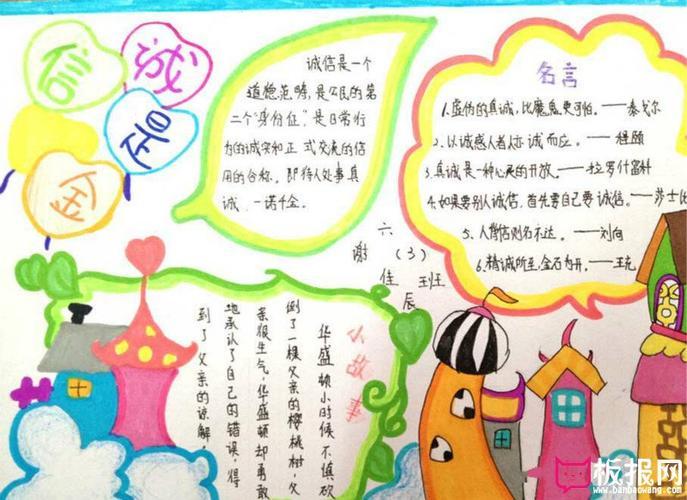 诚
信
是
金
诚信是一个
道德范畴,是公民的第
二个"身份证"是日常行
为的诚实和正式交流的信
用的合称。即待人处事真
诚、一诺千金。
名言
1.虚伪的真诚,比魔鬼更可怕。——泰戈尔
2.以诚感人者人亦诚而应。——程颐
3.真诚是一种心灵的开放。——拉罗什富科
4.如果要别人诚信,首先要自己要诚信。——莎士比
5.人背信则名不达。——刘向
6.精诚所至,金石为开。——王充
六(3)班
谢佳辰
小故事
华盛顿小时候不慎砍
倒了一棵父亲的樱桃树父
亲很生气,华盛顿却勇敢
地承认了自己的错误,得
到了父亲的谅解
板报网
www.banbaowang.com